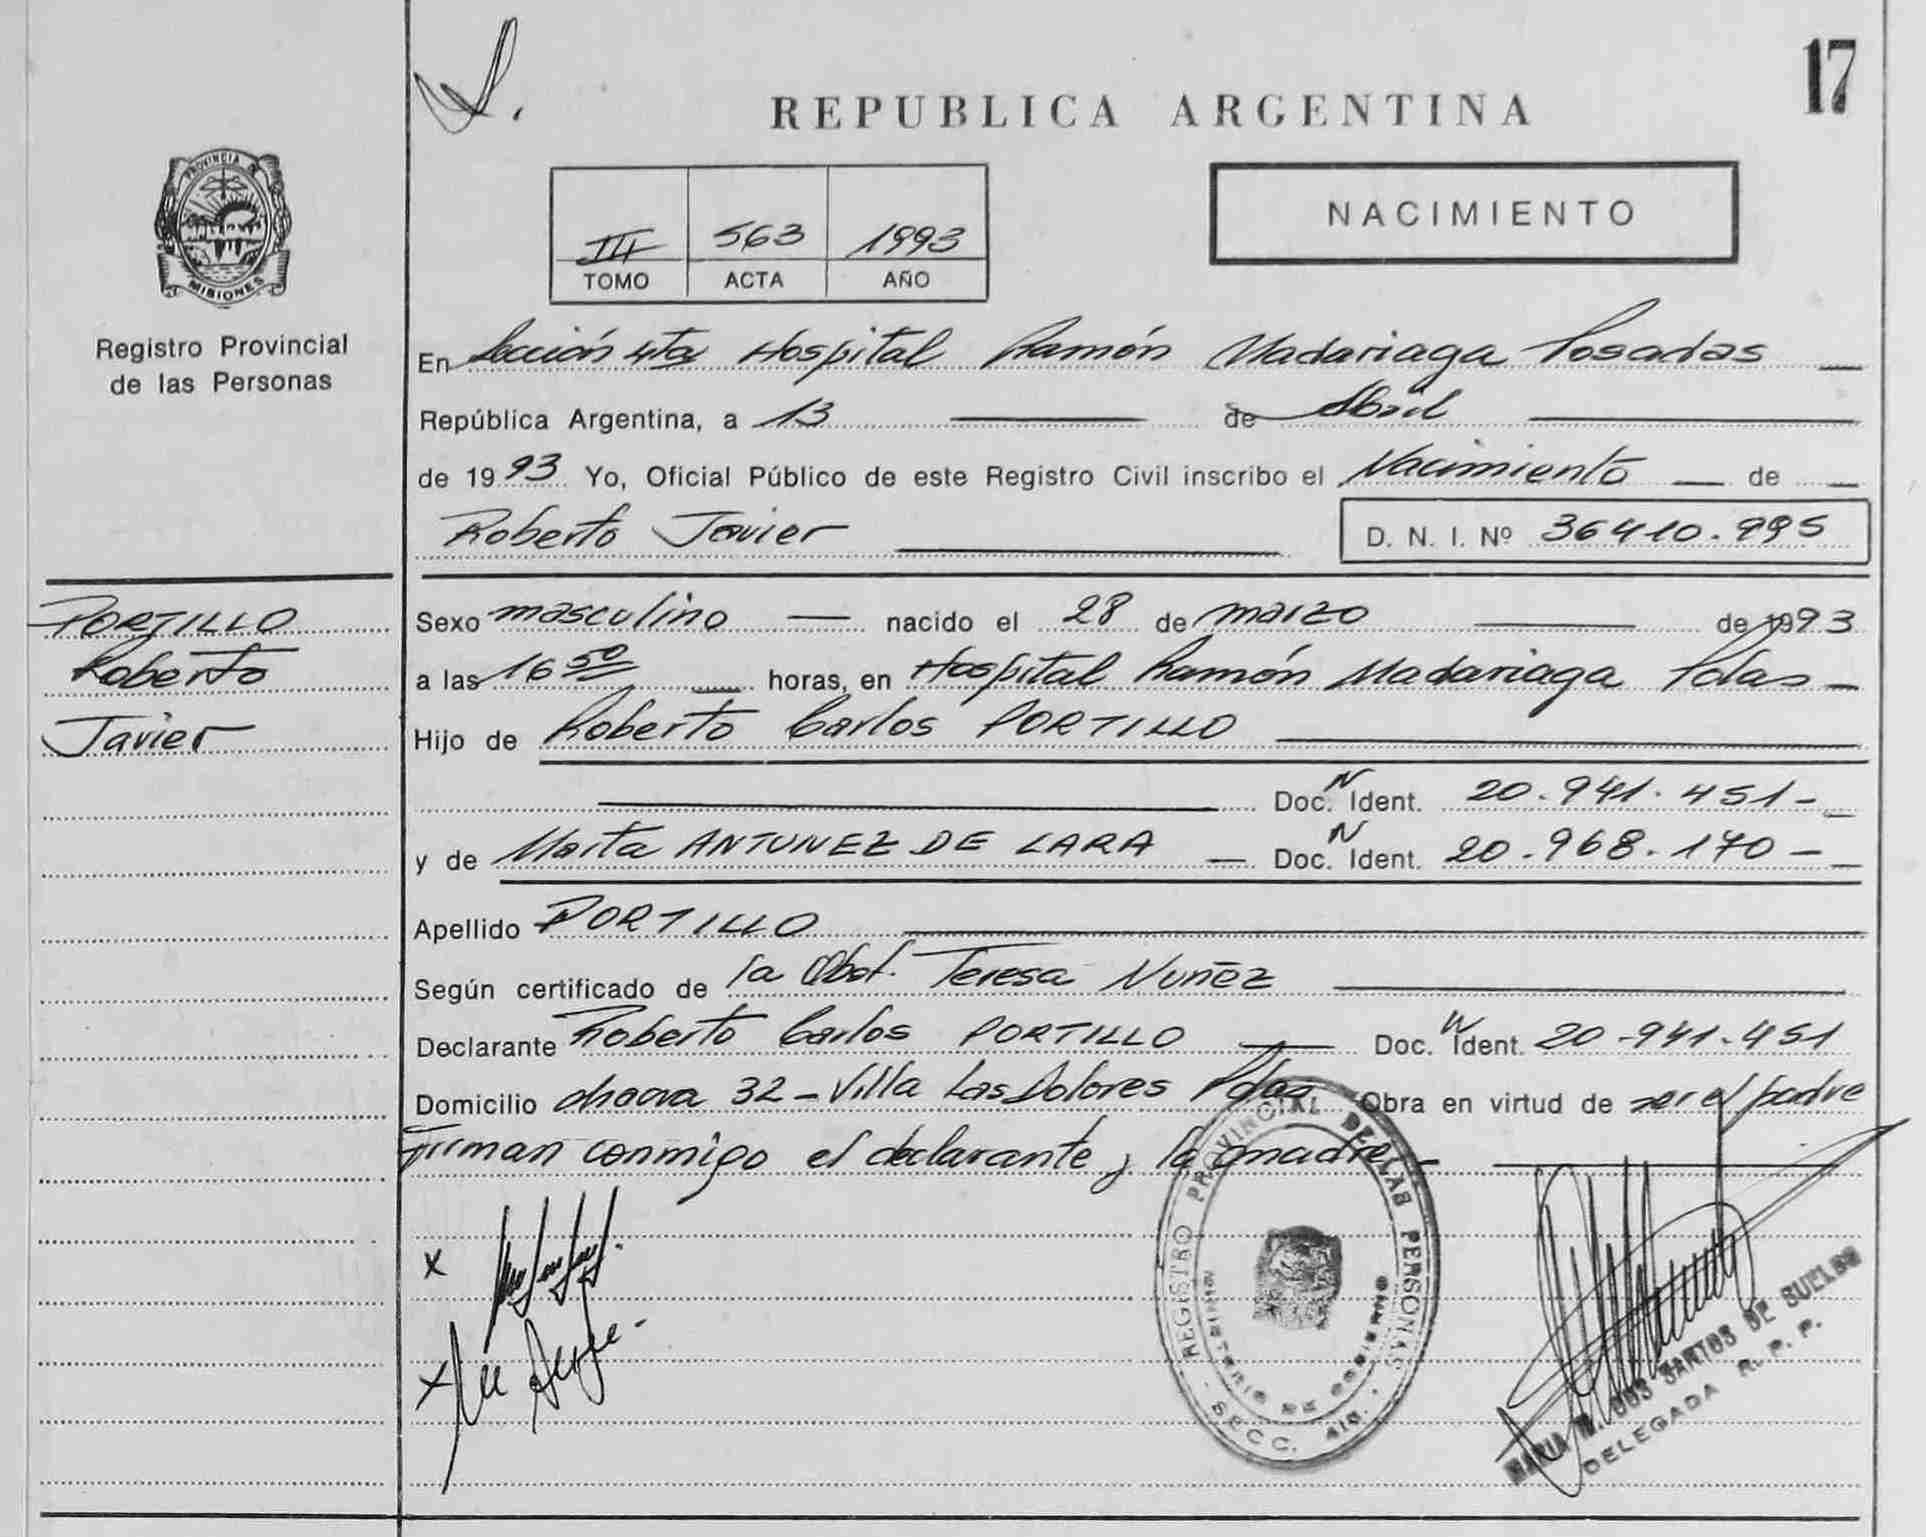 17
REPUBLICA ARGENTINA
PROVINCIA DE
MISIONES
Registro Provincial
de las Personas
III 563 1993
TOMO ACTA AÑO
NACIMIENTO
En Sección 4ta Hospital Ramón Madariaga Posadas
República Argentina, a 13 de Abril
de 1993 Yo, Oficial Público de este Registro Civil inscribo el Nacimiento de
Roberto Javier D. N. I. Nº 36410.995
PORTILLO
Roberto
Javier
Sexo masculino nacido el 28 de marzo de 1993
a las 16 50 horas, en Hospital Ramón Madariaga Pdas
Hijo de Roberto Carlos PORTILLO
Doc. N Ident. 20.941.451
y de Marta ANTUNEZ DE LARA Doc. N Ident. 20.968.170
Apellido PORTILLO
Según certificado de la Obst. Teresa Nuñez
Declarante Roberto Carlos PORTILLO Doc. N Ident. 20.941.451
Domicilio 32 - Villa Las Dolores Pdas Obra en virtud de ser el padre
Firman conmigo el declarante y la madre
REGISTRO PROVINCIAL DE LAS PERSONAS
MINISTERIO DE GOBIERNO
SECC. 4ta.
MARIA M. DOS SANTOS DE SUELDO
DELEGADA R. P. P.